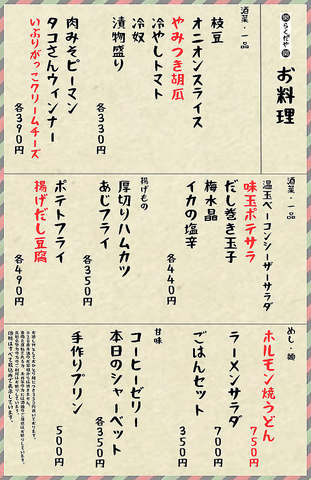 らくだや
お料理
酒菜・一品
枝豆
オニオンスライス
やみつき胡瓜
冷やしトマト
冷奴
漬物盛り
各330円
肉みそピーマン
タコさんウィンナー
いぶりがっこクリームチーズ
各390円
酒菜・一品
温玉ベーコンシーザーサラダ
味玉ポテサラ
だし巻き玉子
梅水晶
イカの塩辛
各440円
揚げもの
厚切りハムカツ
あじフライ
各350円
ポテトフライ
揚げだし豆腐
各490円
めし・麺
ホルモン焼うどん
750円
ラーメンサラダ
700円
ごはんセット
350円
甘味
コーヒーゼリー
本日のシャーベット
各350円
手作りプリン
500円
価格はすべて税込めで表示しています。